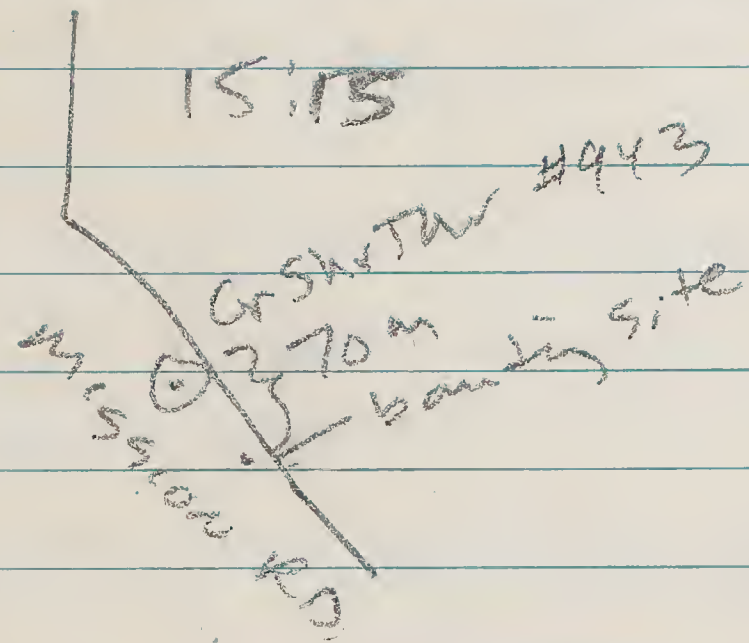 15:15
GrShrThr #943
70m
banding site
Mission RD